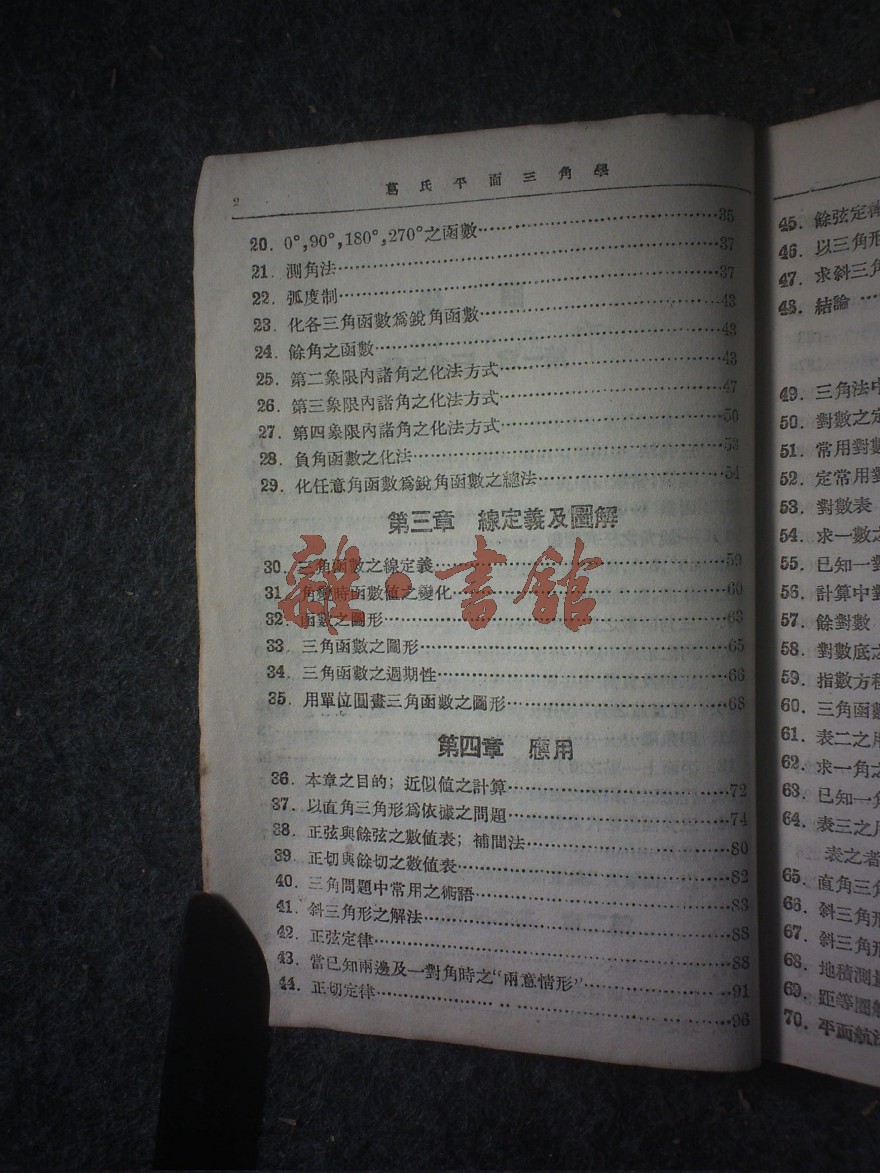 2
葛氏平面三角學
20. 0°,90°,180°,270°之函數……35
21. 測角法……37
22. 弧度制……37
23. 化各三角函數爲銳角函數……43
24. 餘角之函數……43
25. 第二象限內諸角之化法方式……43
26. 第三象限內諸角之化法方式……47
27. 第四象限內諸角之化法方式……50
28. 負角函數之化法……53
29. 化任意角函數爲銳角函數之總法……54
第三章 線定義及圖解
30. 三角函數之線定義……59
31. 角變時函數值之變化……60
32. 函數之圖形……63
33. 三角函數之圖形……65
34. 三角函數之週期性……66
35. 用單位圓畫三角函數之圖形……68
第四章 應用
36. 本章之目的; 近似值之計算……72
37. 以直角三角形爲依據之問題……74
38. 正弦與餘弦之數值表; 補間法……80
39. 正切與餘切之數值表……82
40. 三角問題中常用之術語……83
41. 斜三角形之解法……88
42. 正弦定律……88
43. 當已知兩邊及一對角時之"兩意情形"……91
44. 正切定律……96
雜·書館
45. 餘弦定律
46. 以三角形
47. 求斜三角
48. 結論……
49. 三角法中
50. 對數之定
51. 常用對數
52. 定常用對
53. 對數表
54. 求一數之
55. 已知一對
56. 計算中對
57. 餘對數
58. 對數底之
59. 指數方程
60. 三角函數
61. 表二之用
62. 求一角之
63. 已知一角
64. 表三之用
表之者
65. 直角三角
66. 斜三角形
67. 斜三角形
68. 地積測量
69. 距等圈航
70. 平面航法